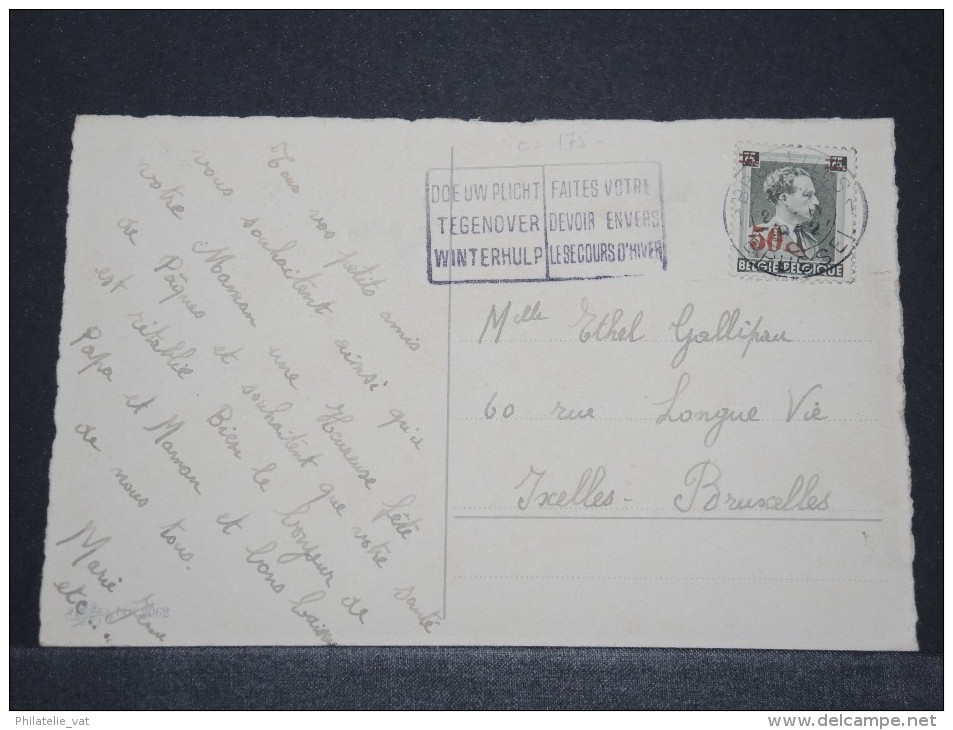 c = 175 -
DOE UW PLICHT
TEGENOVER
WINTERHULP
FAITES VOTRE
DEVOIR ENVERS
LE SECOURS D'HIVER
75 75
50c
BELGIE-BELGIQUE
Tous vos petits amis
vous souhaitent ainsi qu'à
votre Maman une Heureuse fête
de Pâques et souhaitent que votre santé
est rétablie. Bien le bonjour de
Papa et Maman et bons baisers
de nous tous.
Marie
etc...
2062
Mlle Ethel Gallipau
60 rue Longue Vie
Ixelles - Bruxelles
Philatelie_vat
www.delcampe.net